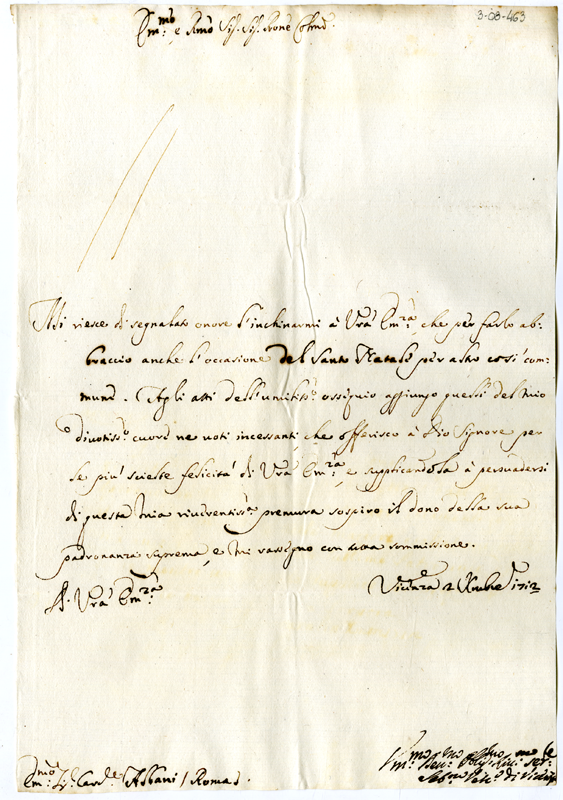 3-08-463
Em:mo e Rmo Sig. Sig. Prone Colmo
Mi riesce di segnalato onore l'inchinarmi à Vrã Em:rã che per farlo ab:
braccio anche l'occasione del Santo Natale per altro così com:
mune. Agli atti dell'umiliss:o ossequio aggiungo quelli del mio
divotiss:o cuore ne voti incessanti che offerisco à Dio Signore per
le più scielte felicità di Vrã Em:rã e supplicandola à persuadersi
di questa mia riverentiss:a premura sospiro il dono della sua
padronanza suprema, e mi rassegno con sommissione.
Di Vrã Em:rã
Vicenza 2 Xmbre 1712
Em:mo Sig. Card.le Albani / Roma
di Vic